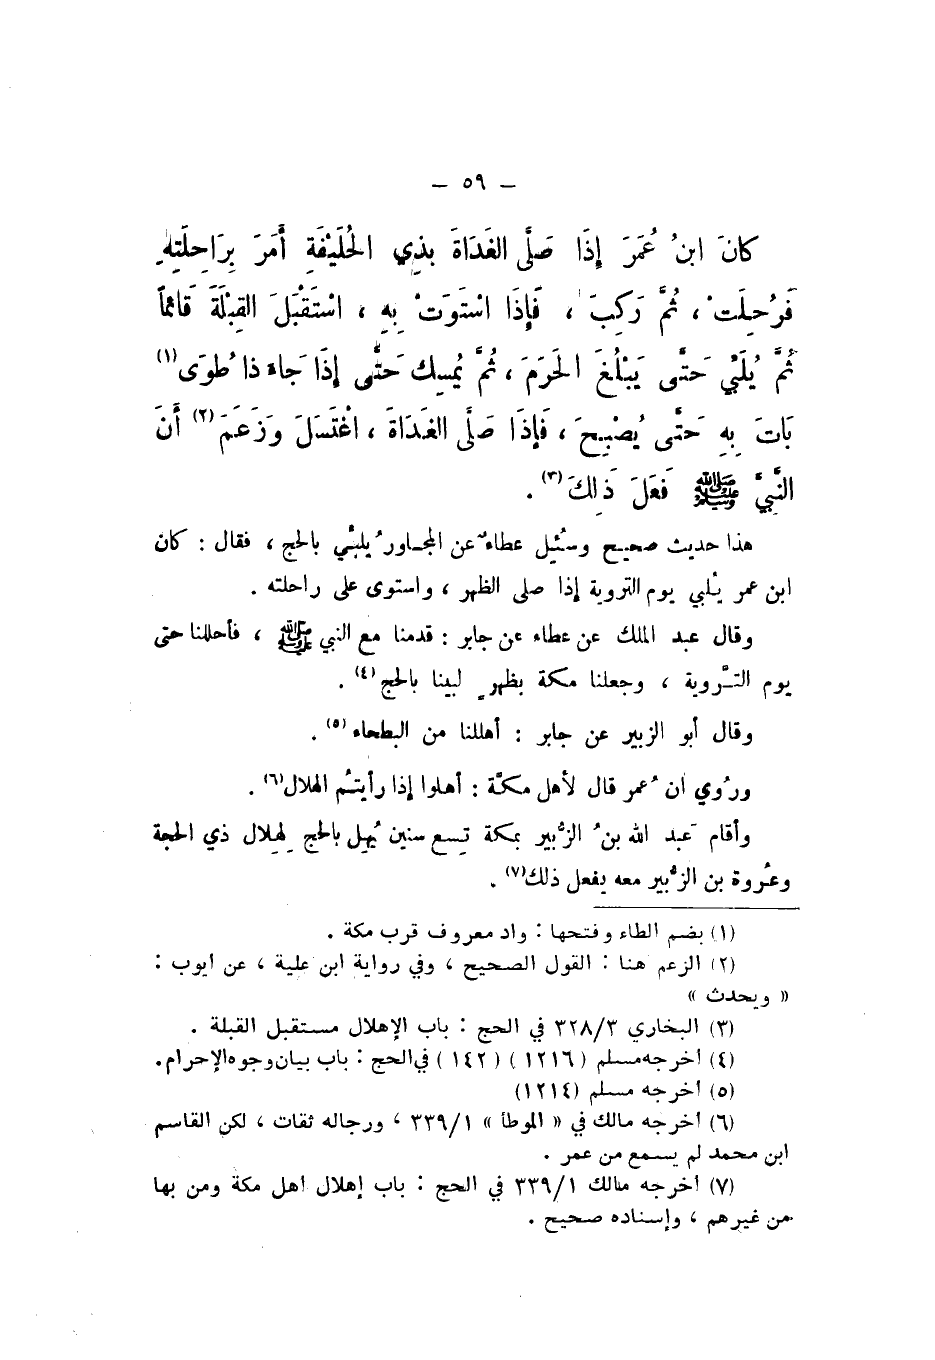 – ٥٩ –
كانَ ابنُ عُمَرَ إِذَا صَلَّى الغَدَاةَ بِذِي الحُلَيْفَةِ أَمَرَ بِرَاحِلَتِهِ
فَرُحِلَتْ ، ثُمَّ رَكِبَ ، فَإِذَا اسْتَوَتْ بِهِ ، اسْتَقْبَلَ القِبْلَةَ قَائماً
ثُمَّ يُلَبِّي حَتَّى يَبْلُغَ الحَرَمَ ، ثُمَّ يُمسِك حَتَّى إِذَا جَاءَ ذا طُوَى (١)
بَاتَ بِهِ حَتَّى يُصْبِحَ ، فَإِذَا صَلَّى الغَدَاةَ ، اغْتَسَلَ وَزَعَمَ (٢) أَنَّ
النَّبِيَّ ﷺ فَعَلَ ذَلِكَ (٣) .
هذا حديث صحيح وسُئِل عطاءٌ عن المجاور يُلبِّي بالحج ، فقال : كان
ابن عمر يُلبي يوم التروية إذا صلى الظهر ، واستوى على راحلته .
وقال عبد الملك عن عطاء عن جابر : قدمنا مع النبي ﷺ ، فأحللنا حتى
يوم التَّروية ، وجعلنا مكة بظهرٍ لبينا بالحج (٤) .
وقال أبو الزبير عن جابر : أهللنا من البطحاء (٥) .
ورُوي أن عُمر قال لأهل مكَّة : أهلوا إذا رأيتُم الهلال (٦) .
وأقام عَبد الله بنُ الزُّبير بمكة تِسع سنين يُهِل بالحج لِهلال ذي الحجة
وعُروة بن الزُّبير معه يفعل ذلك (٧) .
(١) بضم الطاء وفتحها : واد معروف قرب مكة .
(٢) الزعم هنا : القول الصحيح ، وفي رواية ابن علية ، عن أيوب :
« ويحدث »
(٣) البخاري ٣٢٨/٣ في الحج : باب الإهلال مستقبل القبلة .
(٤) أخرجه مسلم ( ١٢١٦ ) ( ١٤٢ ) في الحج : باب بيان وجوه الإحرام .
(٥) أخرجه مسلم (١٢١٤)
(٦) أخرجه مالك في « الموطأ » ٣٣٩/١ ، ورجاله ثقات ، لكن القاسم
ابن محمد لم يسمع من عمر .
(٧) أخرجه مالك ٣٣٩/١ في الحج : باب إهلال أهل مكة ومن بها
من غيرهم ، وإسناده صحيح .